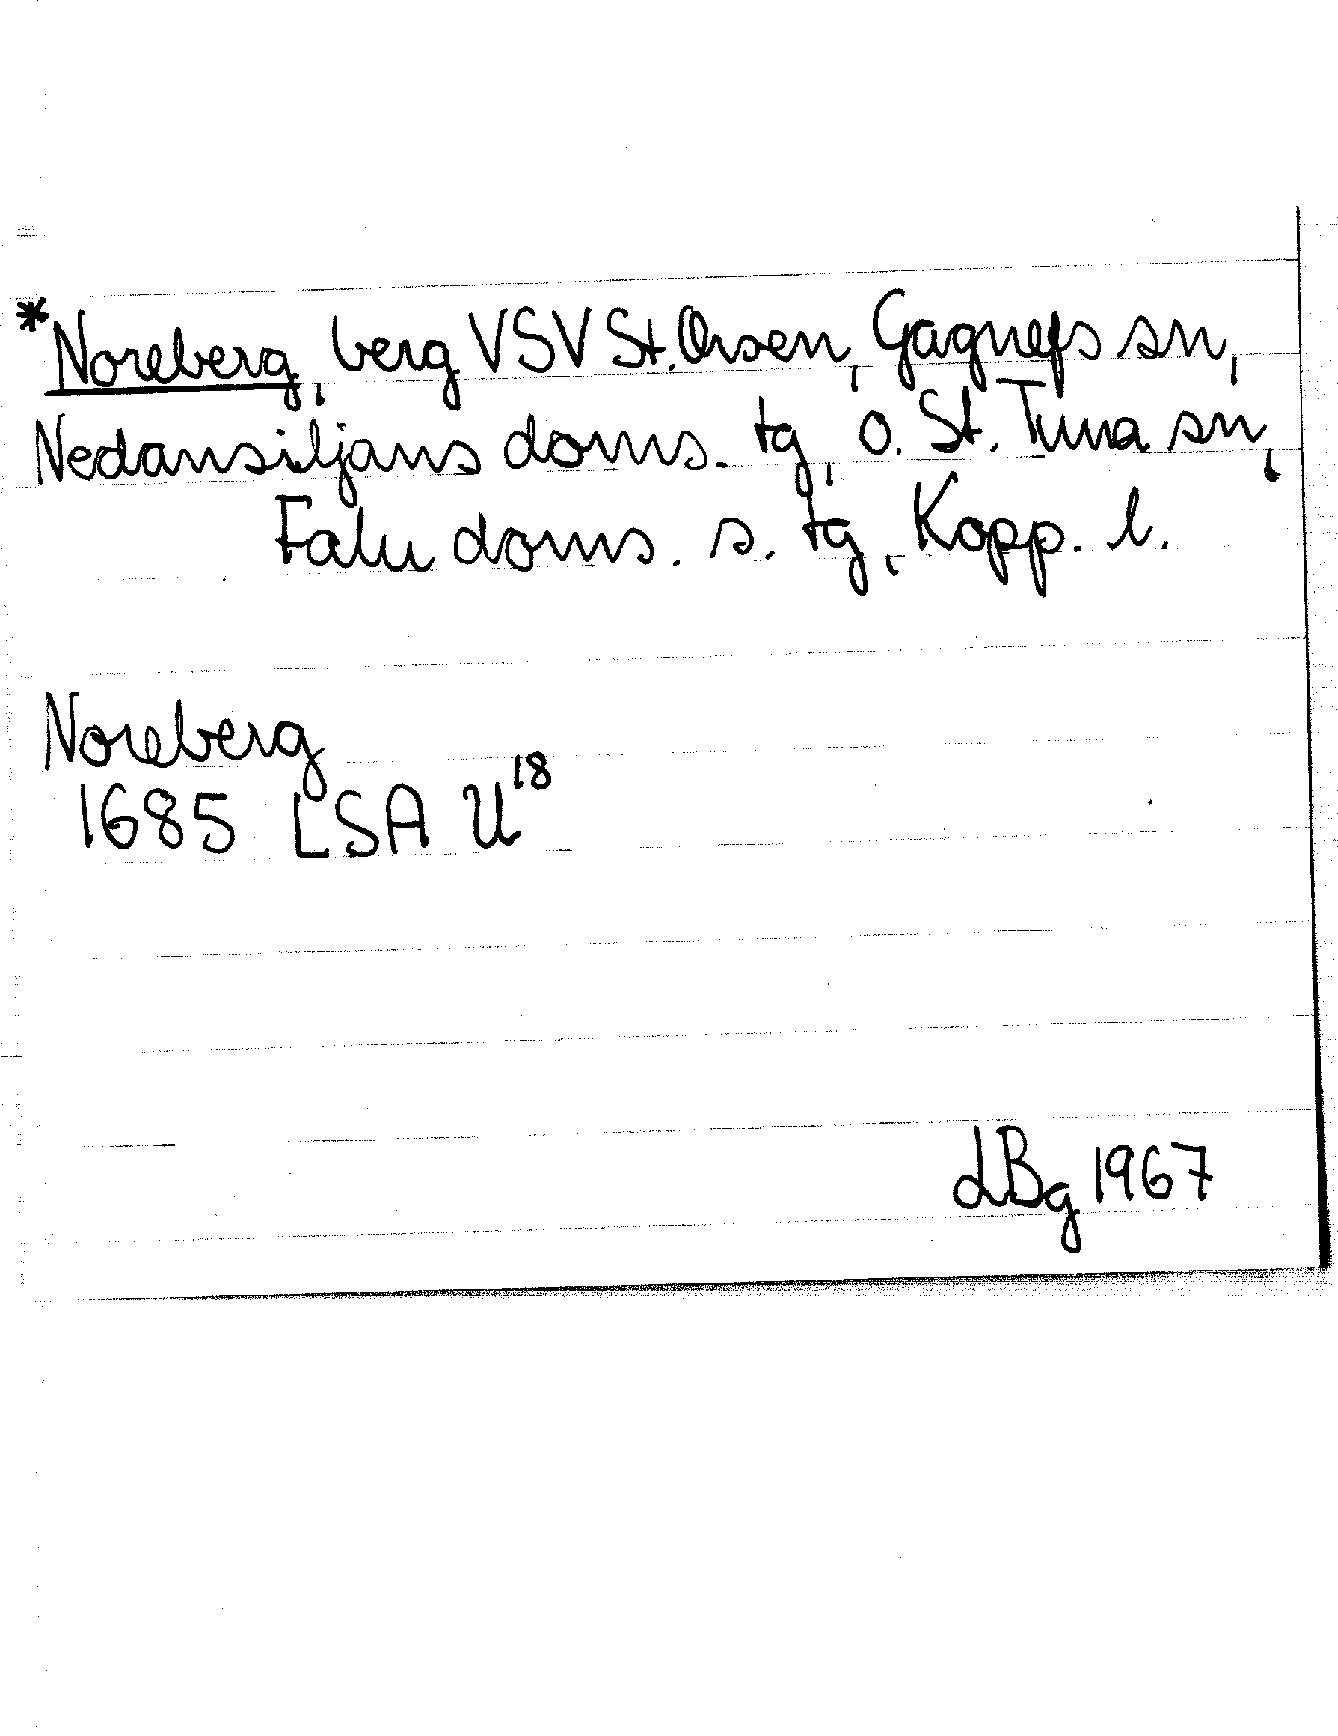 *Noreberg, berg VSV St. Orsen, Gagnefs sn,
Nedansiljans doms. tg, o. St. Tuna sn,
Falu doms. s. tg, Kopp. l.
Noreberg
1685 LSA U18
LBg 1967